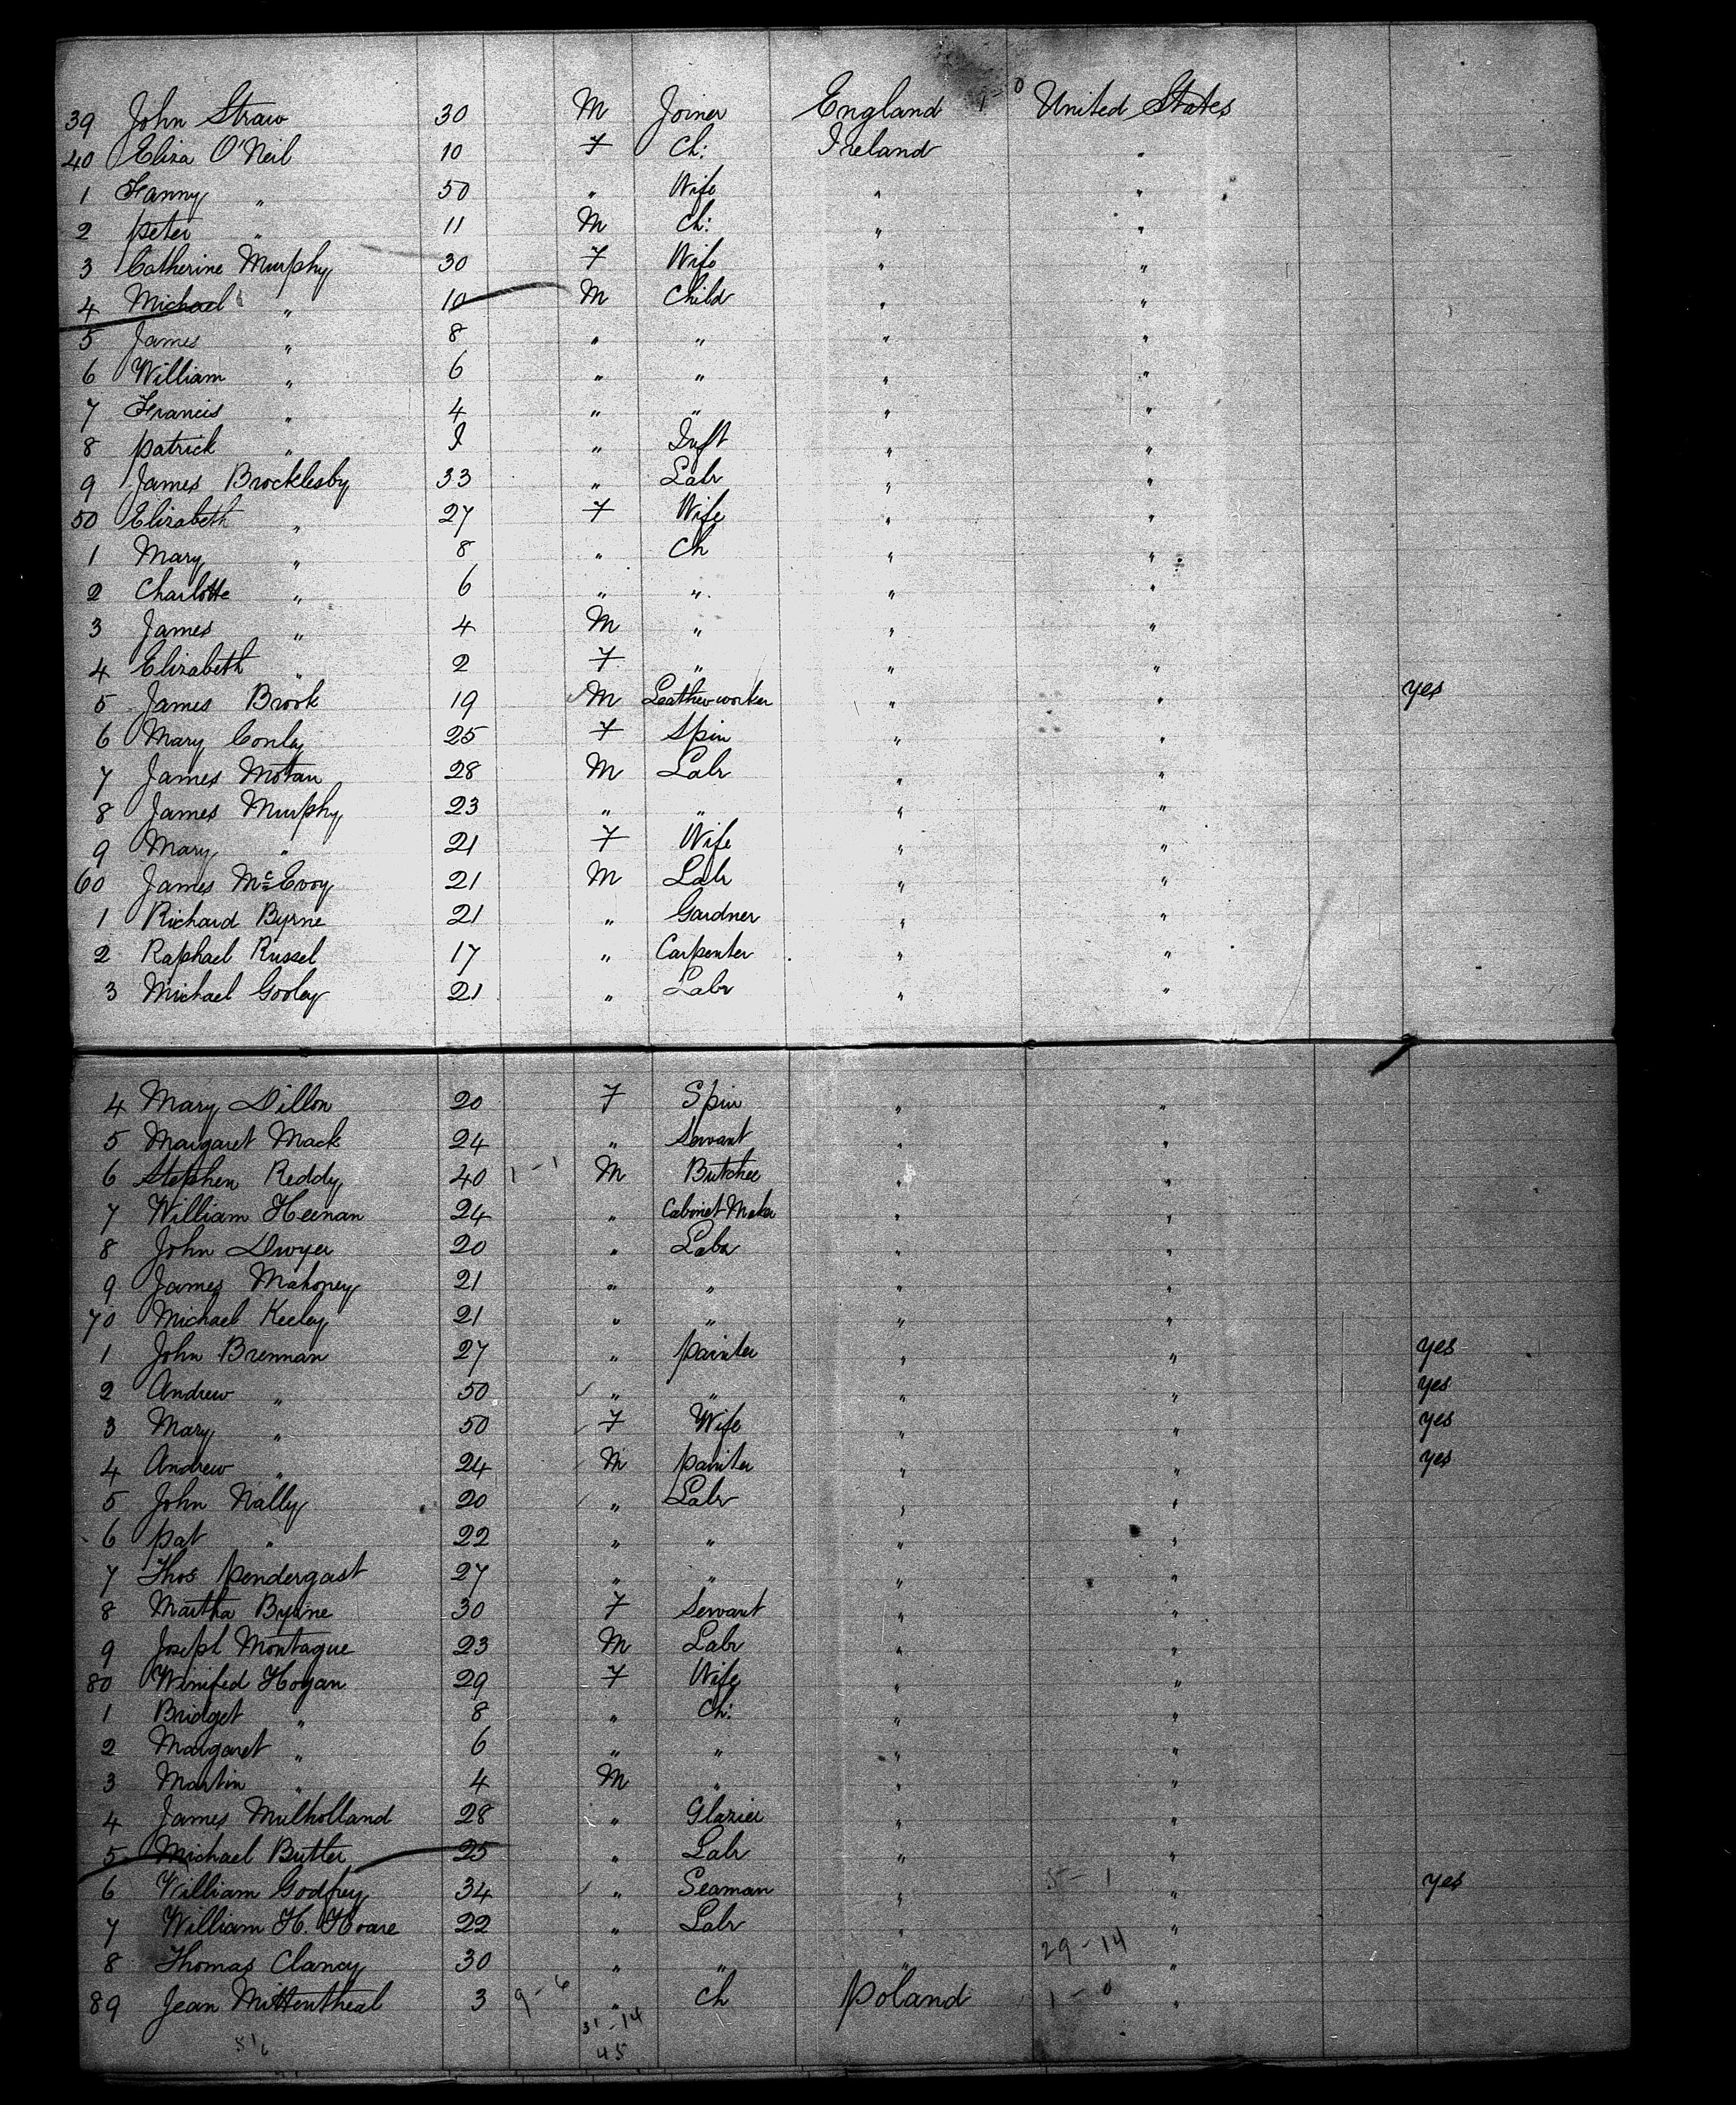 39 John Straw 30 M Joiner England 1-0 United States
40 Eliza O'Neil 10 F Ch: Ireland "
1 Fanny " 50 " Wife " "
2 Peter " 11 M Ch: " "
3 Catherine Murphy 30 F Wife " "
4 Michael " 10 M Child " "
5 James " 8 " " " "
6 William " 6 " " " "
7 Francis " 4 " " " "
8 Patrick " " Inft " "
9 James Brocklesby 33 " Labr " "
50 Elizabeth " 27 F Wife " "
1 Mary " 8 " Ch " "
2 Charlotte " 6 " " " "
3 James " 4 M " " "
4 Elizabeth " 2 F " " "
5 James Brook 19 M Leatherworker " " yes
6 Mary Conley 25 F Spin " "
7 James Motan 28 M Labr " "
8 James Murphy 23 " " " "
9 Mary " 21 F Wife " "
60 James McEvoy 21 M Labr " "
1 Richard Byrne 21 " Gardner " "
2 Raphael Russel 17 " Carpenter " "
3 Michael Gooley 21 " Labr " "
4 Mary Dillon 20 F Spin " "
5 Margaret Mack 24 " Servant " "
6 Stephen Reddy 40 1-1 M Butcher " "
7 William Heenan 24 " Cabinet Maker " "
8 John Dwyer 20 " Labr " "
9 James Mahoney 21 " " " "
70 Michael Keeley 21 " " " "
1 John Brennan 27 " Painter " " yes
2 Andrew " 50 " " " " yes
3 Mary " 50 F Wife " " yes
4 Andrew " 24 M Painter " " yes
5 John Nally 20 " Labr " "
6 Pat " 22 " " " "
7 Thos Pendergast 27 " " " "
8 Martha Byrne 30 F Servant " "
9 Joseph Montague 23 M Labr " "
80 Winifed Hogan 29 F Wife " "
1 Bridget " 8 " Ch: " "
2 Margaret " 6 " " " "
3 Martin " 4 M " " "
4 James Mulholland 28 " Glazier " "
5 Michael Butler 25 " Labr " "
6 William Godfrey 34 " Seaman " 5-1 " yes
7 William H. Hoare 22 " Labr " "
8 Thomas Clancy 30 " " " 29-14 "
89 Jean Mittentheal 3 9-6 " Ch Poland 1-0 "
31-14
45